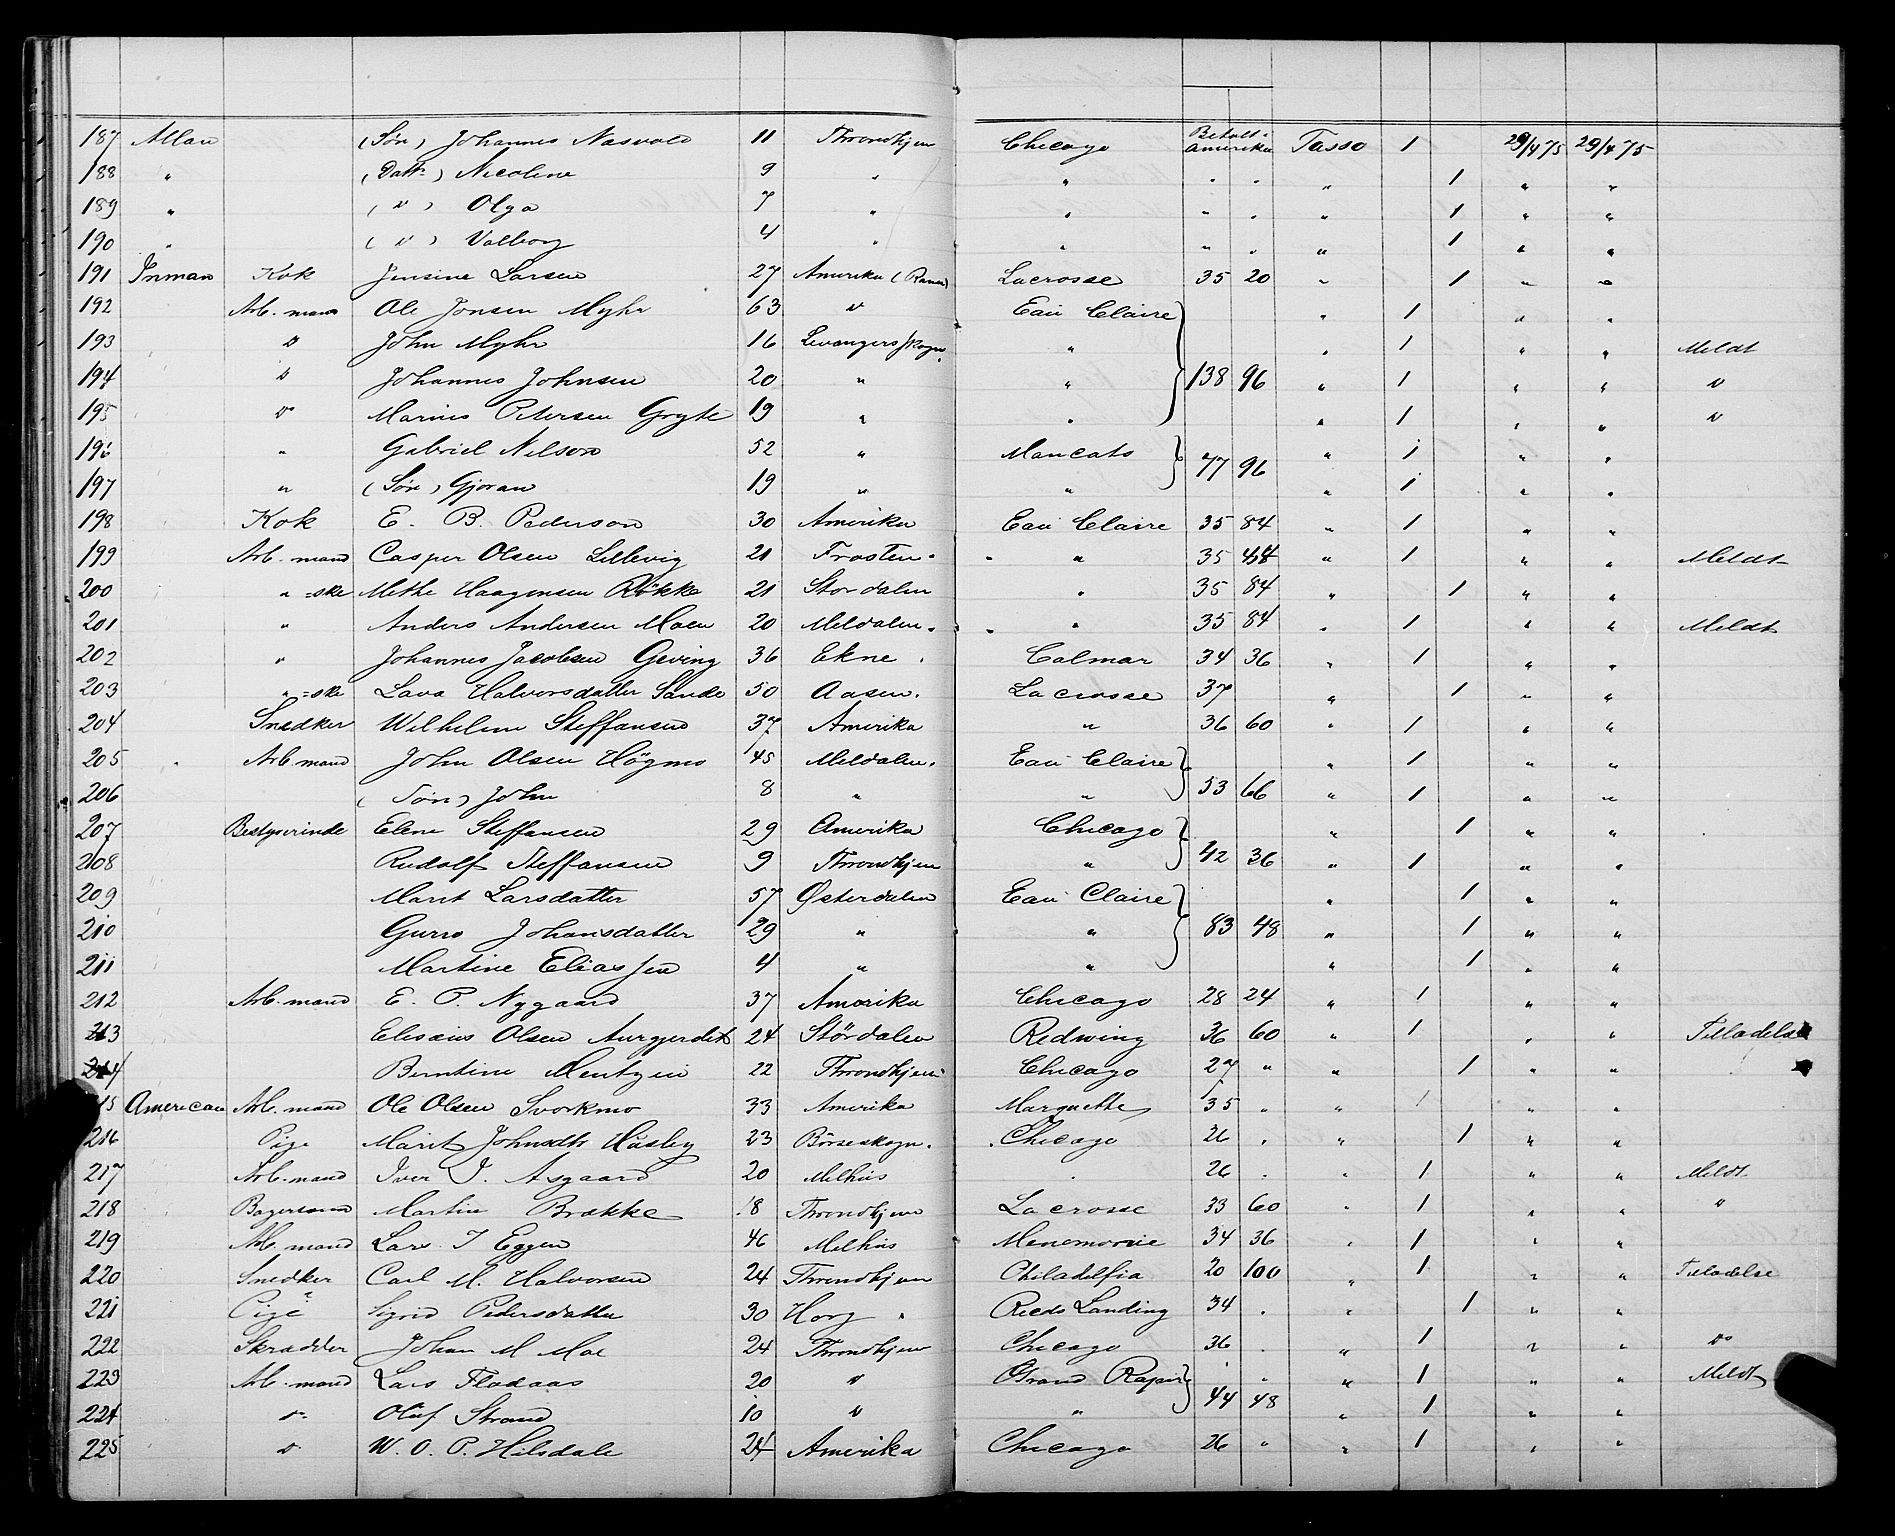 187 Allan (Søn) Johannes Nasvold 11 Throndhjem Chicago Betalt i Amerika Tasso 1 29/4 75 29/4 75
188 " (Datt) Nicoline 9 " " " " " 1 " "
189 " ( " ) Olga 7 " " " " " 1 " "
190 " ( " ) Valborg 4 " " " " " 1 " "
191 Inman Kok Jensine Larsen 27 Amerika (Ranen) Lacrosse 35 20 " 1 " "
192 Arb. mand Ole Jonsen Myhr 63 " Eau Claire " 1 " "
193 " John Myhr 16 Levangers skogn " " 1 " " Meldt
194 " Johannes Johnsen 20 " " 138 96 " 1 " " "
195 " Marius Petersen Gryte 19 " " " 1 " " "
196 " Gabriel Nilson 52 " Mancato 77 96 " 1 " "
197 " (Søn) Gjoran 19 " " " 1 " "
198 Kok E. B. Pederson 30 Amerika Eau Claire 35 84 " 1 " "
199 Arb. mand Casper Olsen Lillevig 21 Frosten " 35 44 " 1 " " Meldt
200 " =ske Methe Haagensen Røkke 21 Stordalen " 35 84 " 1 " "
201 " Anders Andersen Moen 20 Meldalen " 35 84 " 1 " " Meldt
202 " Johannes Jacobsen Geving 36 Ekne Calmar 34 36 " 1 " "
203 " =ske Lava Halvorsdatter Sande 50 Aasen La crosse 37 " 1 " "
204 Snedker Wilhelm Steffensen 37 Amerika " 36 60 " 1 " "
205 " Arb. mand John Olsen Högmo 45 Meldalen Eau Claire " 1 " "
206 (Søn) John 8 " " 53 66 " 1 " "
207 Bestyrerinde Elene Steffensen 29 Amerika Chicago " 1 " "
208 Rudolf Steffensen 9 Throndhjem " 42 36 " 1 " "
209 Marit Larsdatter 57 Østerdalen Eau Claire " 1 " "
210 Gurro Johansdatter 29 " " 83 48 " 1 " "
211 Martine Eliassen 4 " " " 1 " "
212 Arb. mand E. P. Nygaard 37 Amerika Chicago 28 24 " 1 " "
213 Elisæus Olsen 24 Stördalen Redwing 36 60 " 1 " " Tilladelse
214 Berntine Mentzen 22 Throndhjem Chicago 27 " " 1 " "
215 American Arb. mand Ole Olsen Svorkmo 33 Amerika Marquette 35 " " 1 " "
216 Pige Marit Johnsdtr Husby 23 Börseskogn Chicago 26 " " 1 " "
217 Arb. mand Iver J. Asgaard 20 Melhus " 26 " " 1 " " Meldt
218 Bagersvend Martin Brække 18 Throndhjem La crosse 33 60 " 1 " " "
219 Arb. mand Lars J Eggen 46 Melhus Menemonie 34 36 " 1 " "
220 Snedker Carl M. Halvorsen 24 Throndhjem Philadelfia 20 100 " 1 " " Tilladelse
221 Pige Sigrid Pedersdatter 30 Horg Reeds Landing 34 " " 1 " "
222 Skrædder Johan M Moe 24 Throndhjem Chicago 36 " " 1 " " "
223 Arb. mand Lars Flodaas 20 " Grand Rapids " " " 1 " " Meldt
224 " Oluf Strand 10 " " 44 48 " 1 " "
225 " W. O. P. Hilsdale 24 Amerika Chicago 26 " " 1 " "